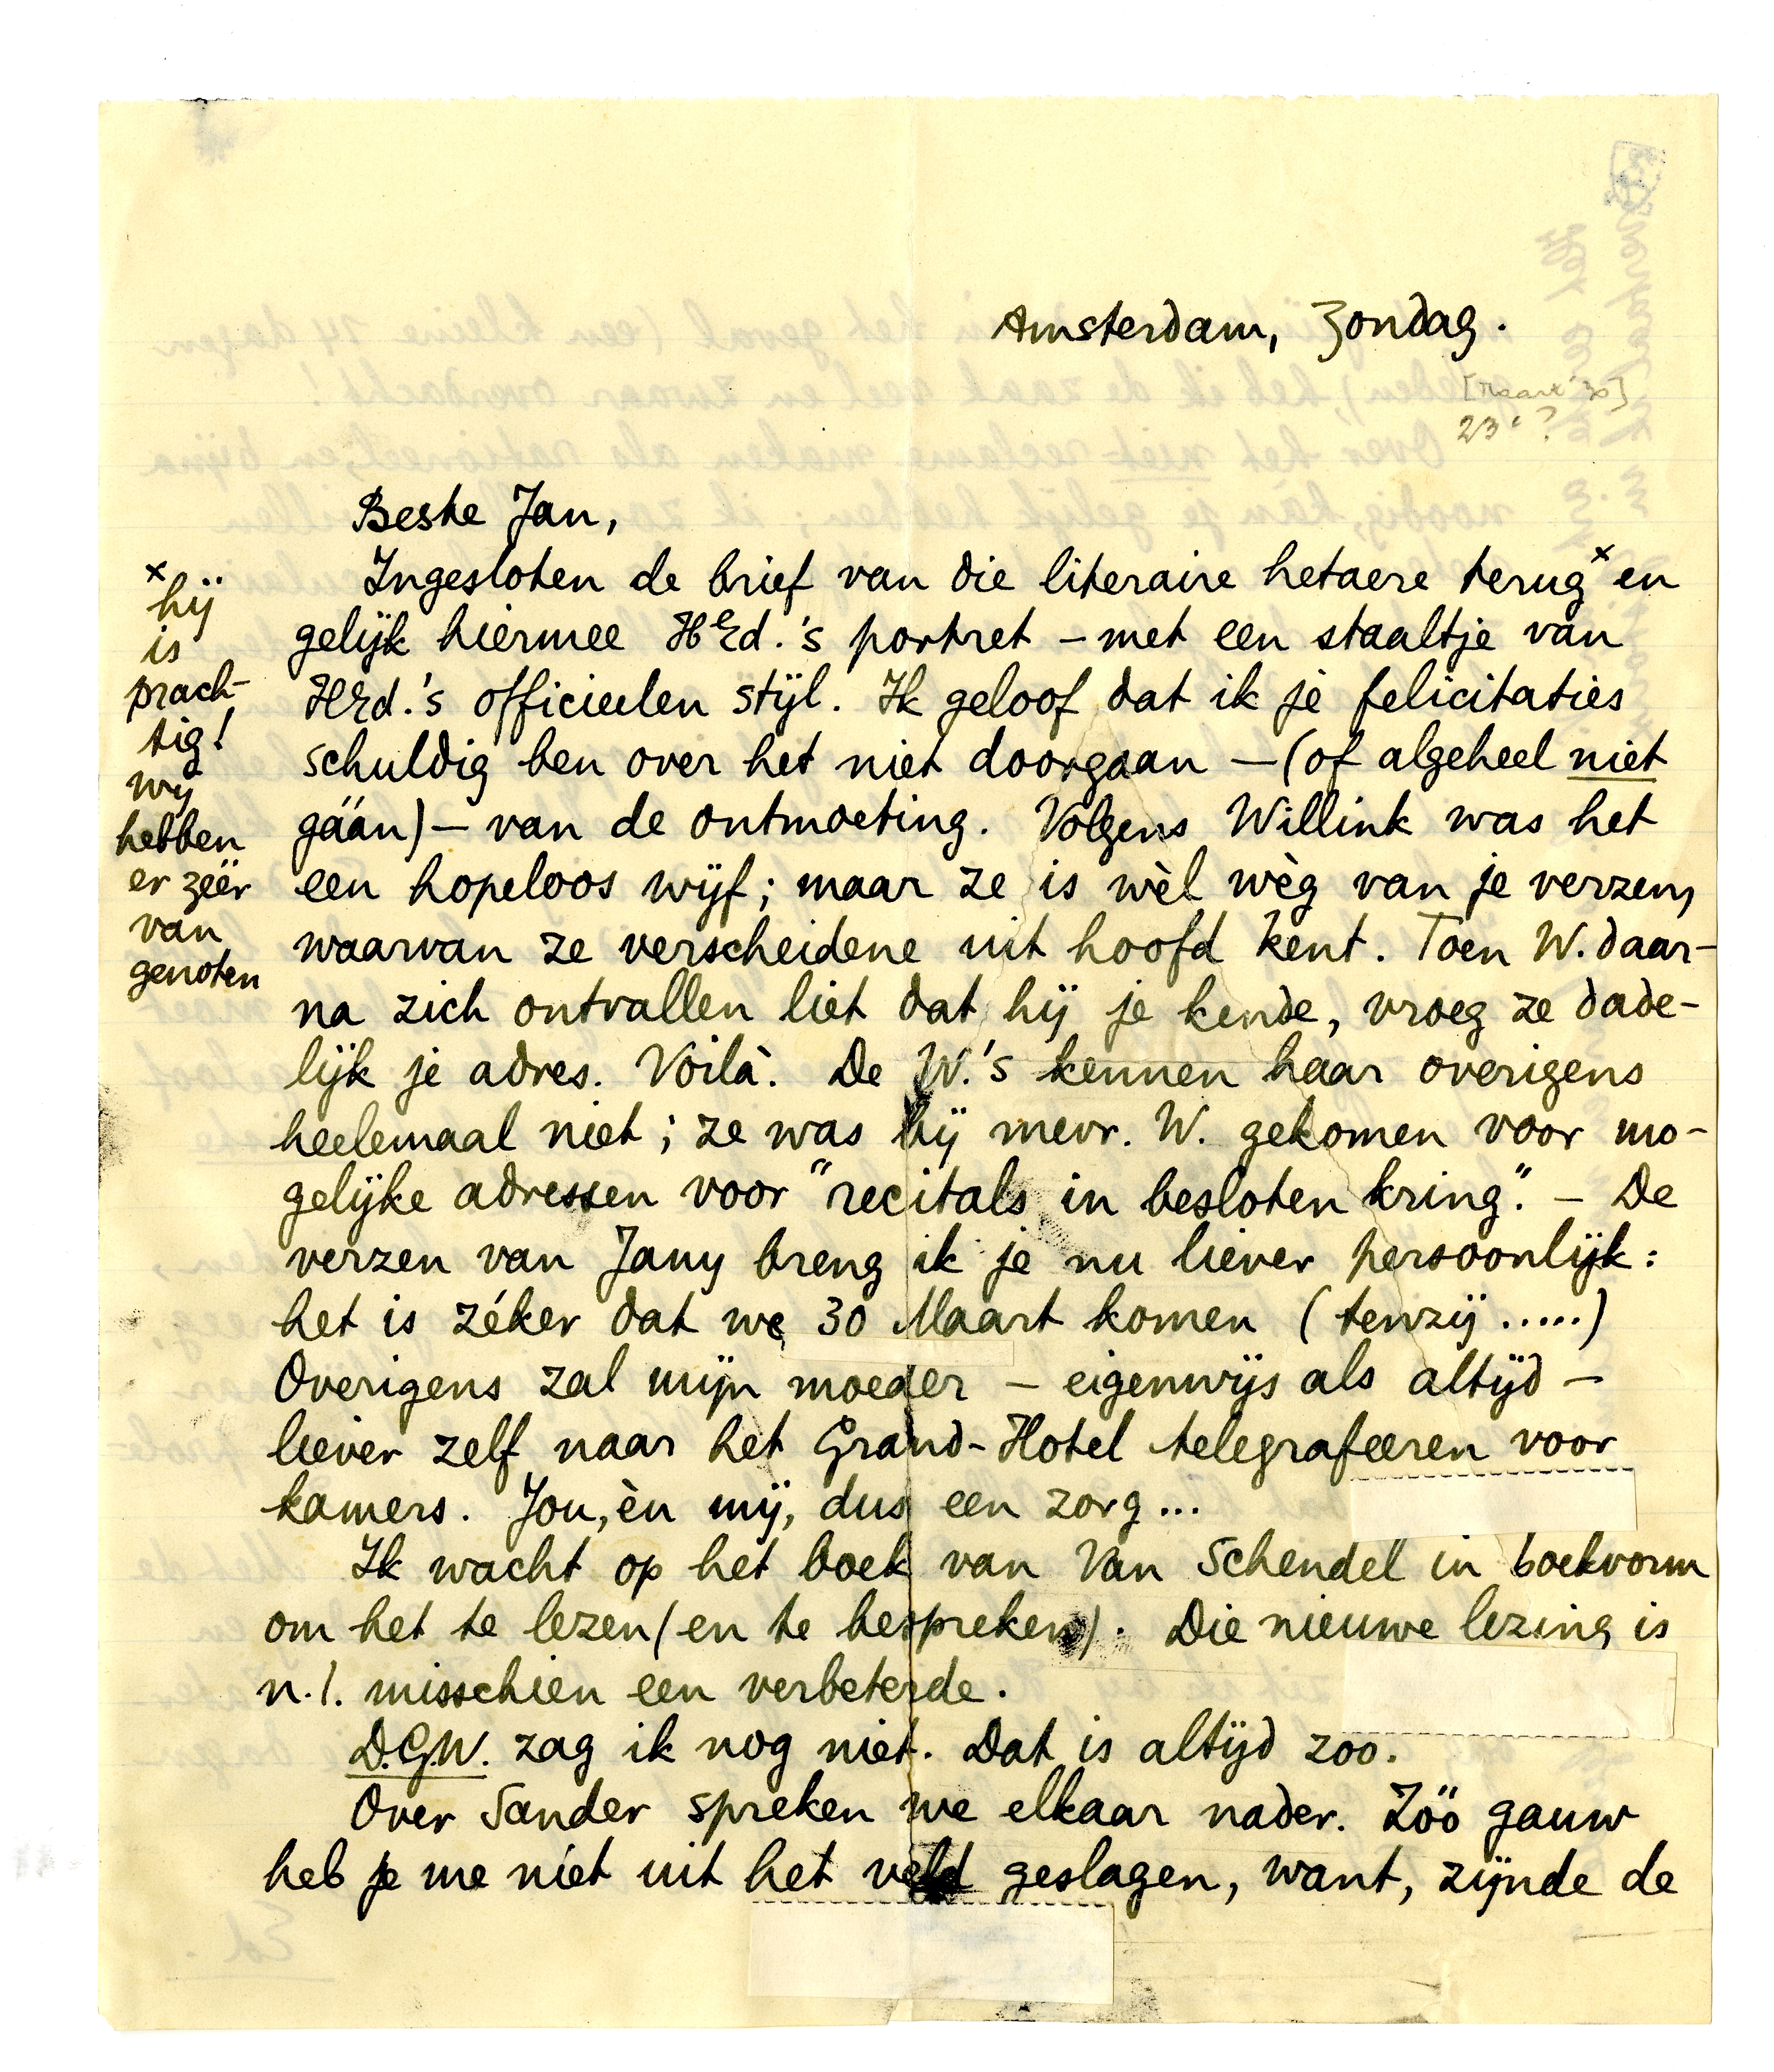 Amsterdam, Zondag.
[Maart '30]
23e?
Beste Jan,
Ingesloten de brief van die literaire hetaere terug x en
gelijk hiermee HEd.'s portret – met een staaltje van
HEd.'s officieelen stijl. Ik geloof dat ik je felicitaties
schuldig ben over het niet doorgaan – (of algeheel niet
gáán) – van de ontmoeting. Volgens Willink was het
een hopeloos wijf; maar ze is wèl wèg van je verzen,
waarvan ze verscheidene uit hoofd kent. Toen W. daar-
na zich ontvallen liet dat hij je kende, vroeg ze dade-
lijk je adres. Voilà. De W.'s kennen haar overigens
heelemaal niet; ze was bij mevr. W. gekomen voor mo-
gelijke adressen voor "recitals in besloten kring". – De
verzen van Jany breng ik je nu liever persoonlijk:
het is zéker dat we 30 Maart komen (tenzij .....)
Overigens zal mijn moeder – eigenwijs als altijd –
liever zelf naar het Grand-Hotel telegrafeeren voor
kamers. Jou, èn mij, dus een zorg...
Ik wacht op het boek van Van Schendel in boekvorm
om het te lezen (en te bespreken). Die nieuwe lezing is
n.l. misschien een verbeterde.
D.G.W. zag ik nog niet. Dat is altijd zoo.
Over Sander spreken we elkaar nader. Zóó gauw
heb je me niet uit het veld geslagen, want, zijnde de
x
hij
is
prach-
tig!
wij
hebben
er zéér
van
genoten
Ed.